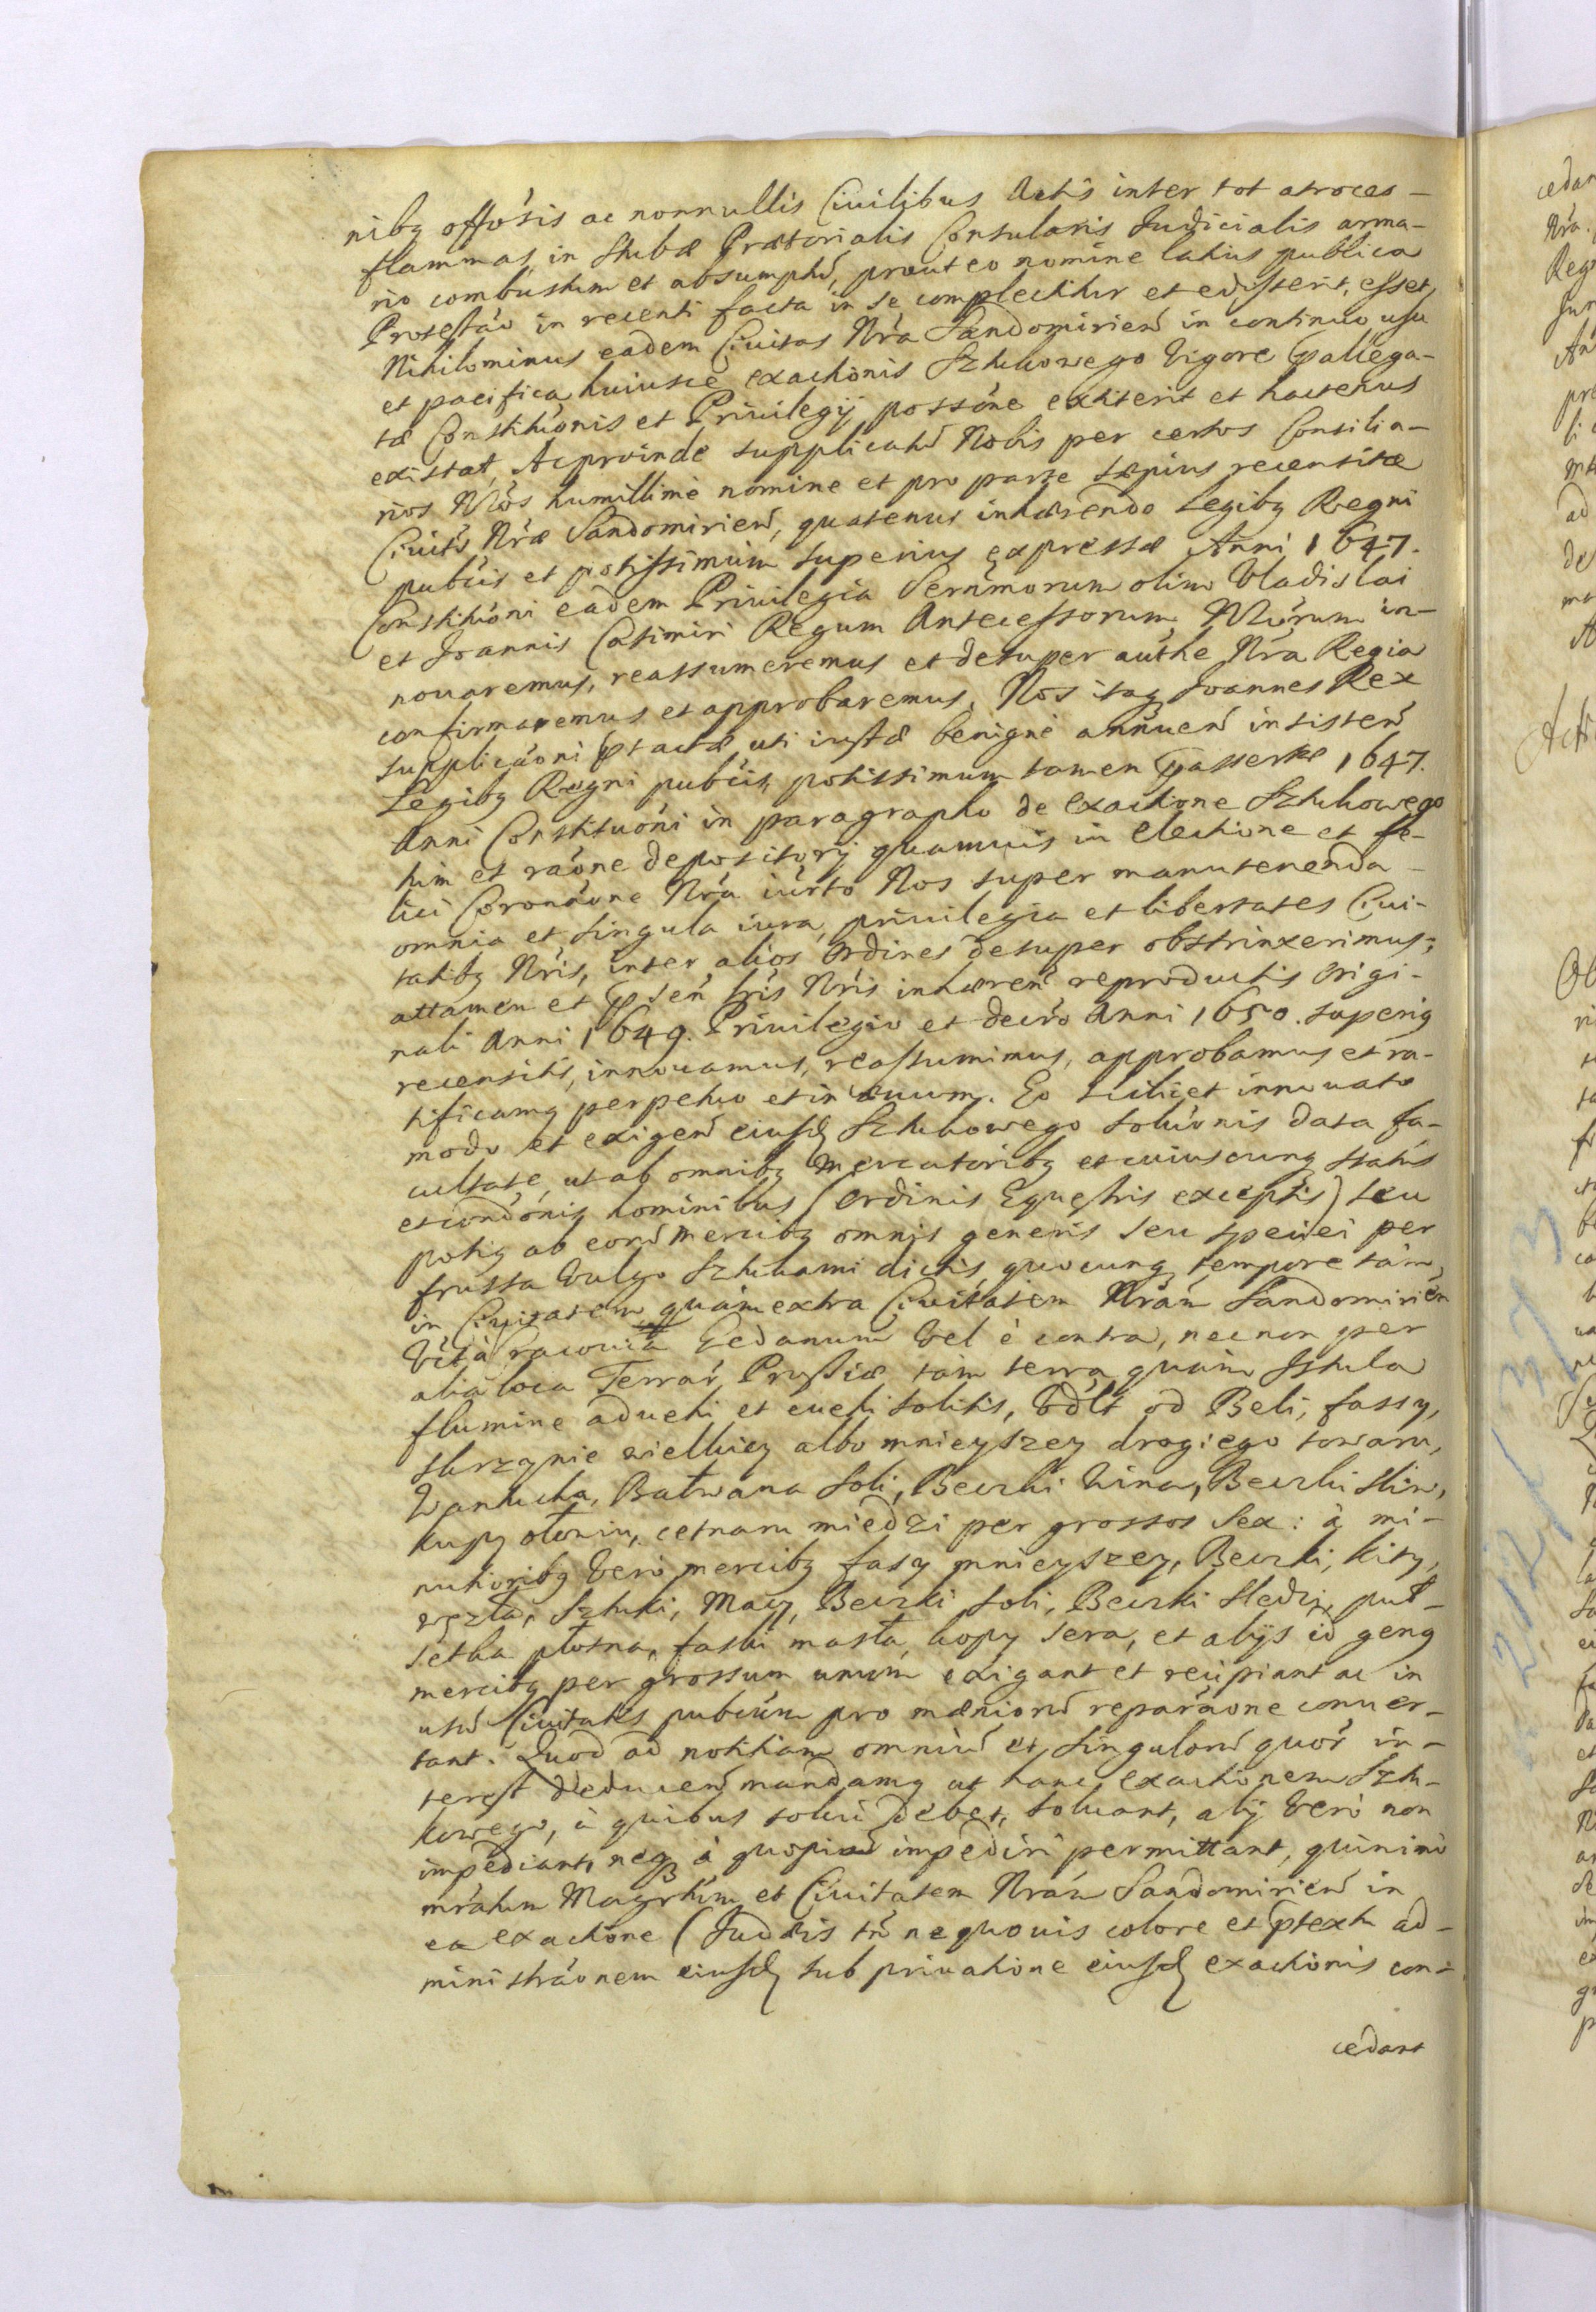 nibq offosis ac nonnullis Ciuilibus Actis inter tot atroces-
flammas in Stubæ Prætorialis Consularis Judicialis arma-
rio combustum et absumptũ, prout eo nomine latius publica
Protestáo in recenti facta in se complectitur et edisserit, esset,
Nihilominus eadem Ciuitas Nrá Sandomirień in continuo usu
et pacifica huiusce exactionis Sztukowego Vigore pallega-
tæ Constitúonis et Priuilegij possóne extiterit et hactenus
existat, Ac proinde supplicatũ Nobis per certos Consilia-
rios Nrós humillimè nomine et pro parte sæpius recensitæ
Ciuitís Nræ Sandomirień, quatenus inhærendo Legibq Regni
pubcis et potissimùm superius expressæ Anni 1647.
Constitúoni eadem Priuilegia Sernmorum olim Vladislai
et Joannis Casimiri Regum Antecessorum Nrórum in-
nouaremus, reassumeremus et desuper authe Nrá Regia
confirmaremus et approbaremus. Nos itaq Joannes Rex
supplicaóni ptactæ uti iustæ benignè annueń insisteń
Legibq Regni pubcis, potissimum tamen passertæ 1647.
Anni Constituóni in paragrapho de Exactione Sztukowego
tum et raóne depositorij quamuis in Electione et fe-
lici Coronaóne Nrá iurto Nos super manutenenda-
omnia et singula iura, priuilegia et libertates Ciui-
tatibq Nrís, inter alios Ordines desuper obstrinxerimus;
attamen et pseń lrís Nrís inhæreń reproductis Origi-
nali Anni 1649. Priuilegio et decró Anni 1650. superiq
recensitis, innouamus, reassumimus, approbamus et ra-
tificamq perpetuo et in æuum. Eo scilicet innouato
modo et exigeń eiusd Sztukowego solúonis data fa-
cultate, ut ab omnibq mercatoribq et cuiuscunq statûs
et condónis hominibus (Ordinis Equestris exceptis) seu
potiq ab eorũ mercibq omnis generis seu speciei per
frusta Vulgo Sztukami dictis, quocunq tempore tàm
in Ciuitatem quàm extra Ciuitatem Nrám Sandomirień
Vct à racouiâ Gedanum Vel è contra, necnon per
alia loca Terrar Prussiæ tàm terra quàm Istula
flumine aduehi et euehi solitis, Vdlt od Beli, fassy,
skrzynie wielkiey albo mnieyszey drogiego towaru,
Wantucha, Bałwana Soli, Beczki Wina, Beczki sliw,
kupy ołowiu, cetnaru miedzi per grossos Sex: à mi-
nutioribq Verò mercibq fasy mnieyszey, Beczki, kity,
węzła, Sztuki, Macy, Beczki Soli, Beczki sledzi, puł-
setka płotna, faski masła, kopy sera, et alijs id genq
mercibq per grossum unum exigant et recipiant ac in
usũ Ciuitatis pubcúm pro mæniorũ reparáone conuer-
tant. Quod ad notitiam omniũ et singulorũ quor in-
terest deduceń mandamq ut hanc exactionem Sztu-
kowego, à quibus solui debet, soluant, alij Verò non
impediant, neq à quopiam impediri permittant, quinimò
mratum Magrtúm et Ciuitatem Nrám Sandomirień in
ea exactióne (Judæis tñ ne quouis colore et ptextu ad-
ministráonem eiusd sub priuatione eiusd exactionis con-
cedant